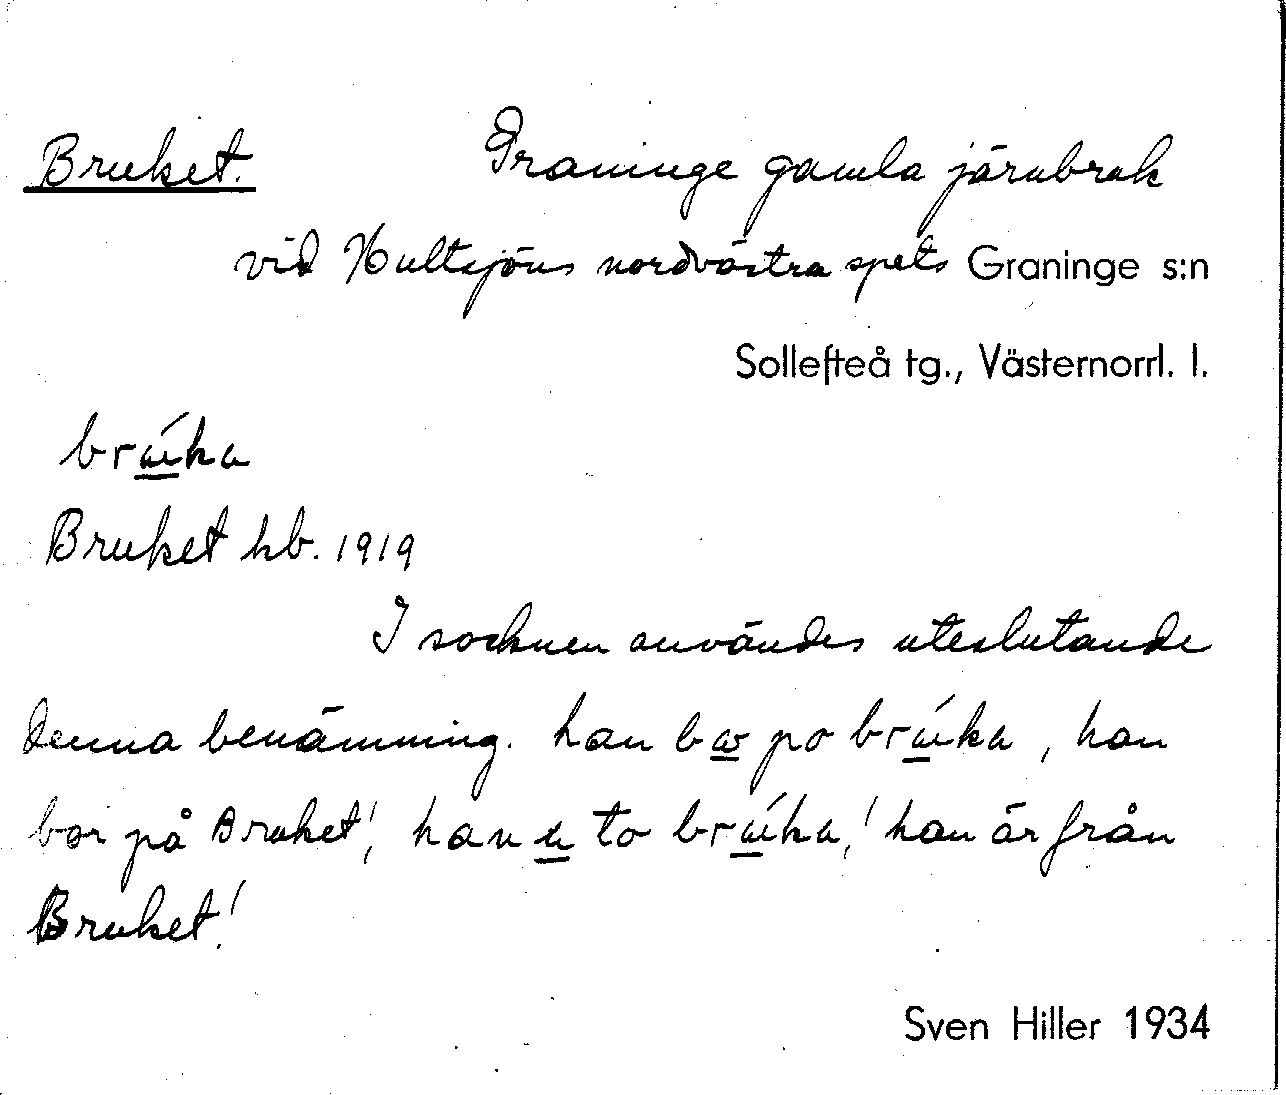 Bruket. Graninge gamla järnbruk
vid Hultsjöns nordvästra spets Graninge s:n
Sollefteå tg., Västernorrl. l.
brúka
Bruket hb. 1919
I socknen användes uteslutande
denna benämning. han bor po brúka, han
bor på Bruket', han e to brúka,' han är från
Bruket!
Sven Hiller 1934